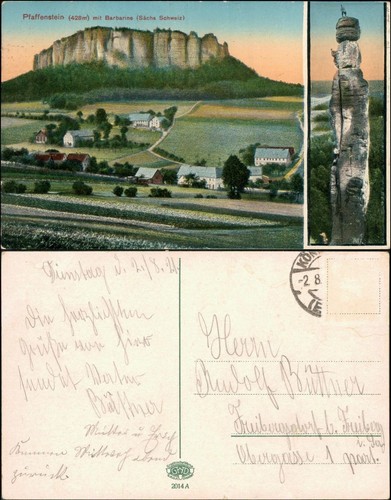 Pfaffenstein (428m) mit Barbarine (Sächs Schweiz)
Dienstag d. 2./8. 21.
Die herzlichsten
Grüße von hier
sendet Vater
Büttner
Mutter u.
kommen Mittwoch abend
zurück
KÖN
-2.8.
Herrn
Rudolf Büttner
Freibergsdorf b. Freiberg
i. Sa.
Obergasse 1 part.
2014 A